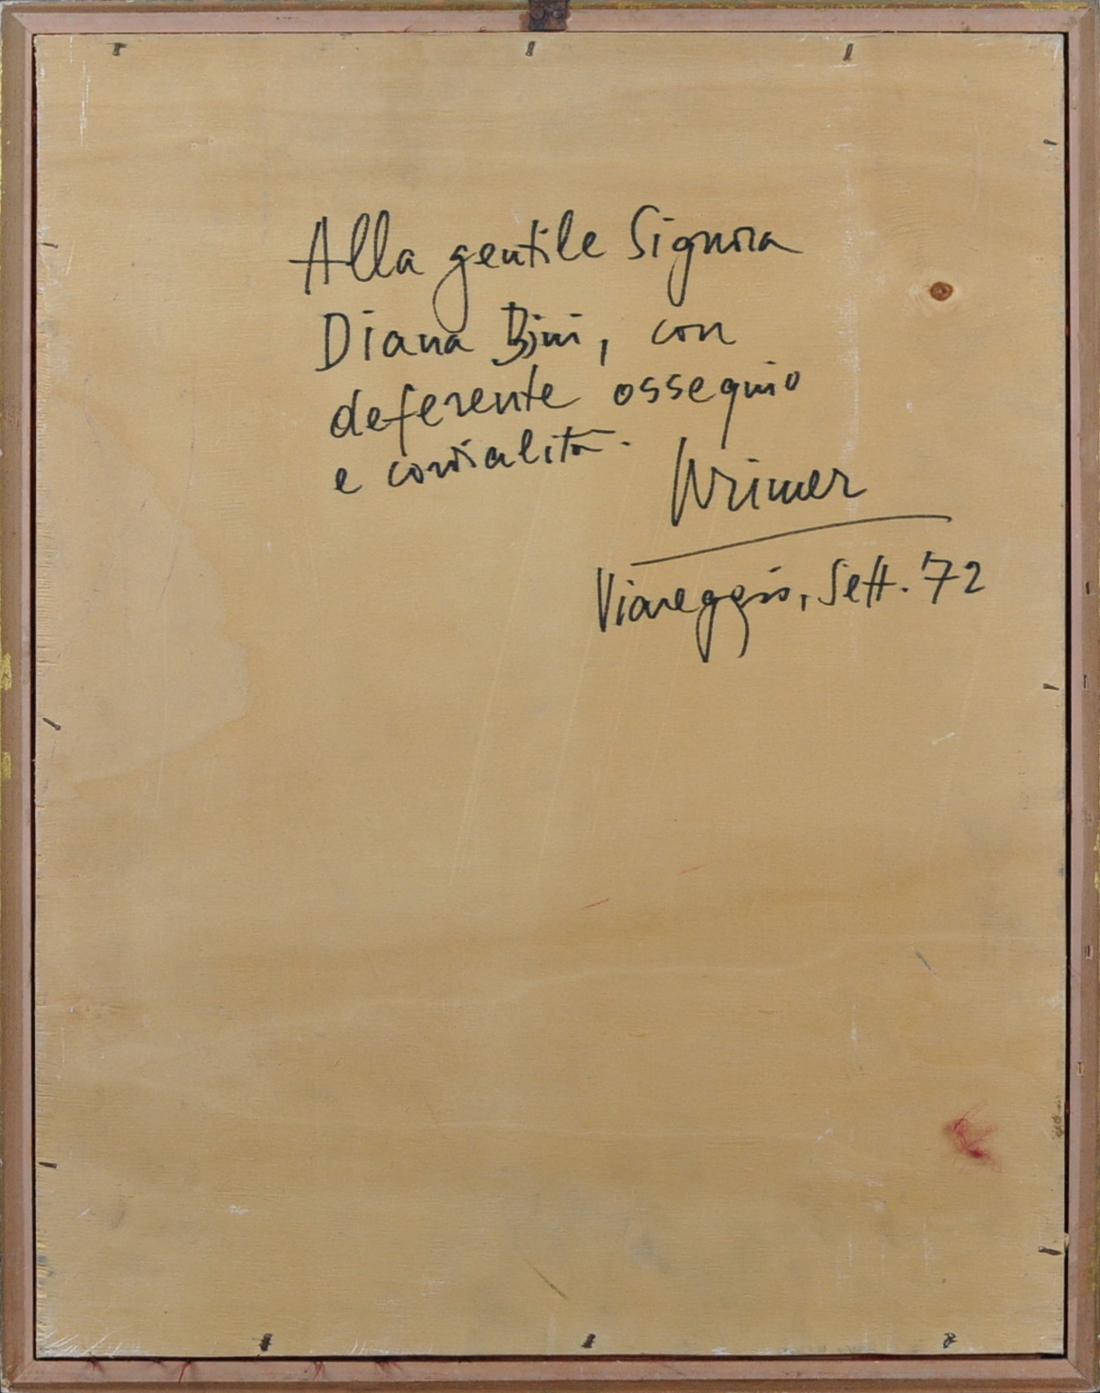 Alla gentile Signora
Diana Bini, con
deferente ossequio
e cordialità.
Krimer
Viareggio, Sett. '72